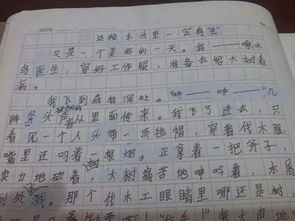 DATE
这棵木头里一定有虫
又是一个美好的一天。我——啄木
鸟医生,穿好工作服,准备去给大树看
病。
我飞到森林深处。"——",几
阵斧头声从里面传来。我飞了过去,只
看见一个人头带一顶毡帽,穿着伐木服
嘴里还叼着根烟。正拿着一把斧子,
卖力地砍着,大树痛苦地呻吟着,木屑
到处飞。那个伐木工眼睛里哪还是树